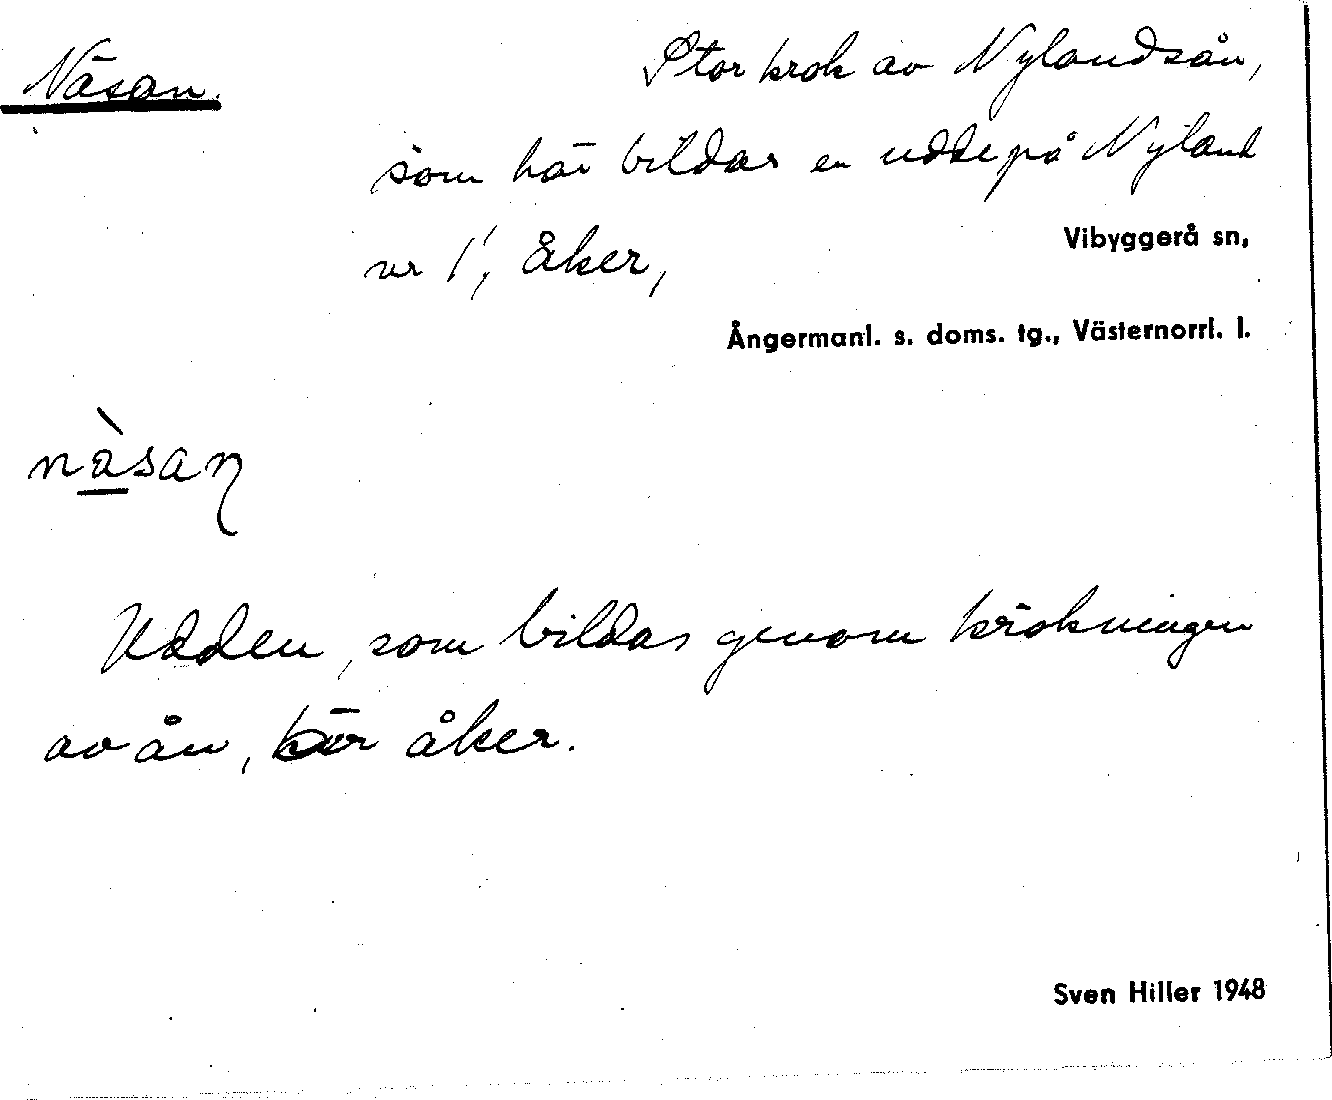 Näsan.
Stor krok av Nylandsån,
som här bildar en udde på Nyland
nr 1', åker,
Vibyggerå sn,
Ångermanl. s. doms. tg., Västernorrl. l.
nàsaꞃ
Udden, som bildas genom krökningen
av ån, är åker.
Sven Hiller 1948